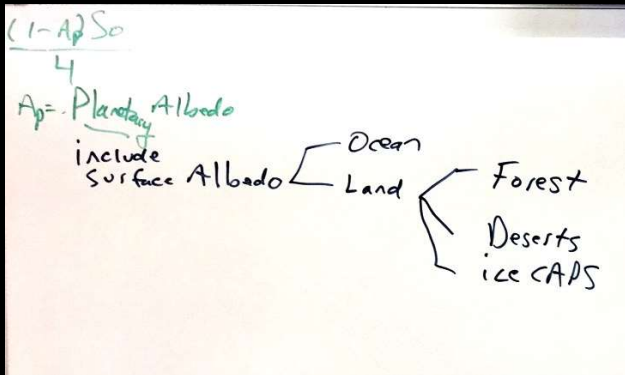 (1-Ap)So
4
Ap = Planetary Albedo
include
surface Albedo
Ocean
Land
Forest
Deserts
ice CAPS